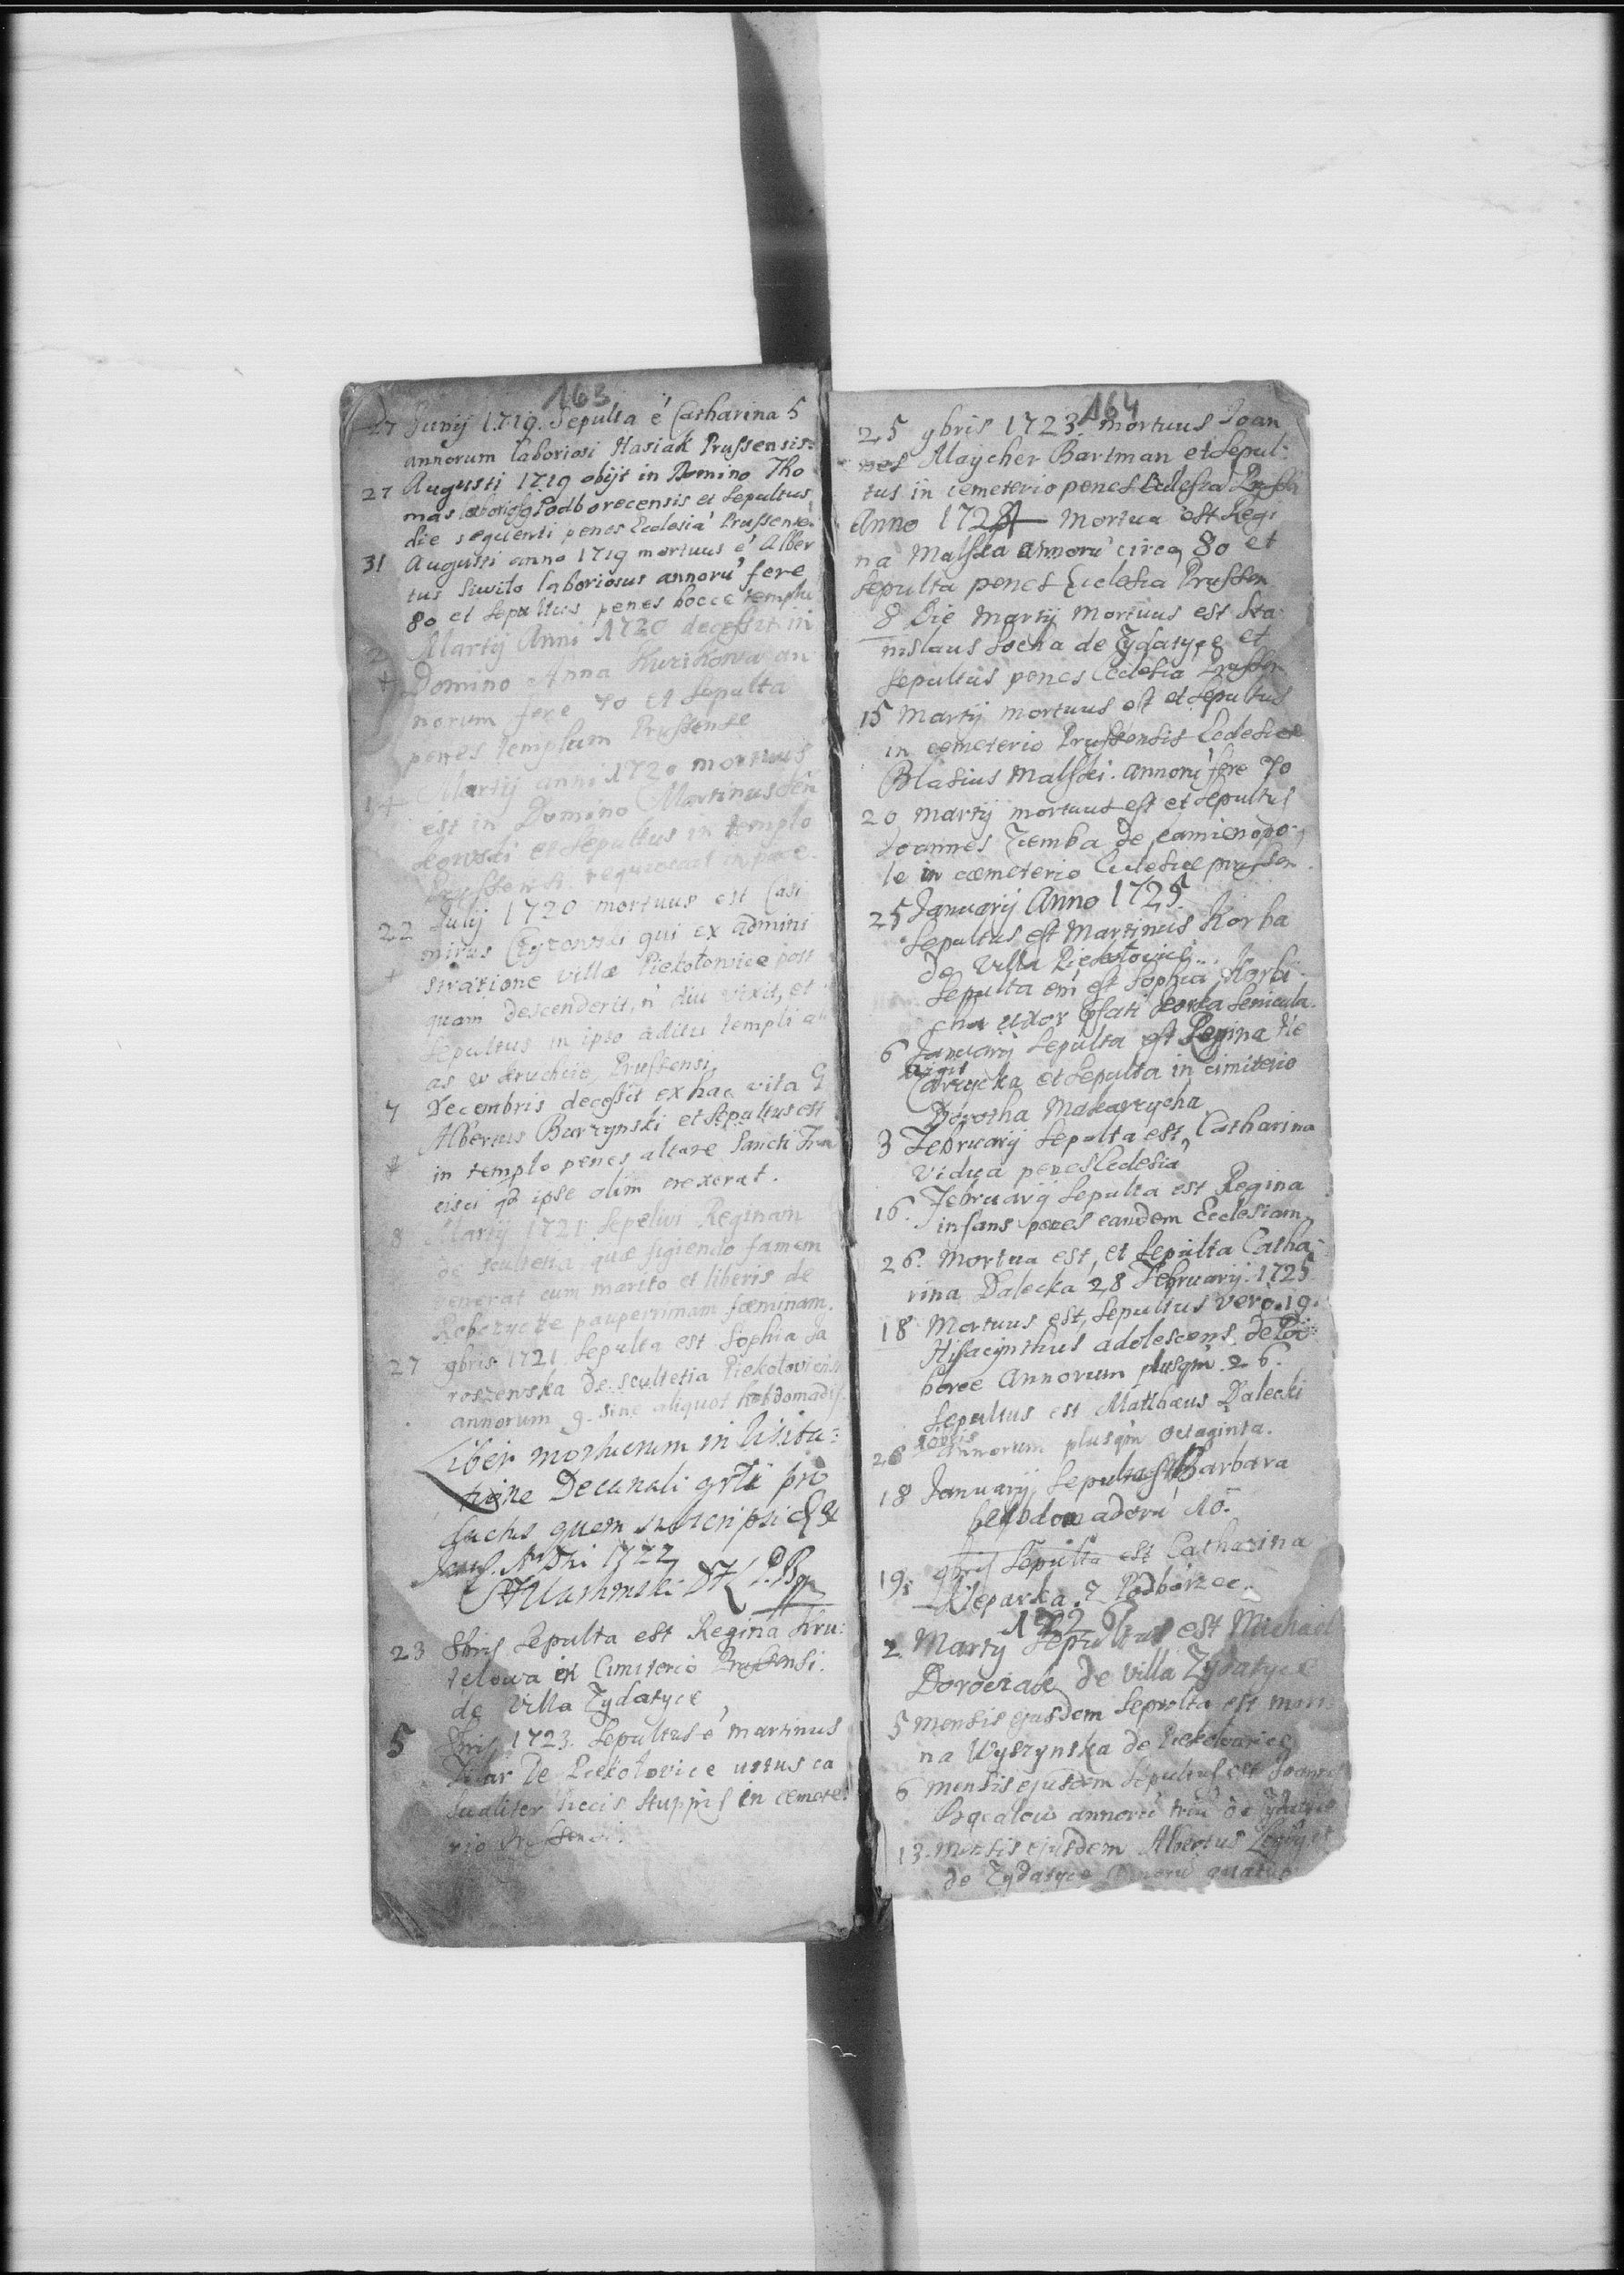 163
27 Junij 1719. Sepulta é Catharina 5
annorum laboriosi Hasiak Prussensis:
27 Augusti 1719 obijt in Domino Tho
mas laboriosq Podborecensis et Sepultus
die sequenti penes Ecclesiá Prussensé.
31 Augusti anno 1719 mortuus é Alber
tus Suwito laboriosus annorú fere
80 et Sepultus penes hocce templú
Martij Anni 1720 decessit in
Domino Anna Kurikowa an
norum fere 70 et Sepulta
penes templum Prussense
14 Martij anni 1720 mortuus
est in Domino Martinus Sen
kowski et Sepultus in templo
Prussensi. requiescat in pace.
22 Julij 1720 mortuus est Casi
mirus Czyzowski qui ex admini
stratione villæ Piekołowice post
quam descenderit, ń diu vixit, et
Sepultus in ipso aditu templi ali
as w kruchcie, Prussensi.
7 Decembris decessit ex hac vita G
Albertus Burzynski et Sepultus est
in templo penes altare Sancti Fran
cisci qd ipse olim erexerat.
8 Martij 1721 Sepelivi Reginam
de scultetia, quæ fugiendo famem
venerat cum marito et liberis de
pauperrimam fæminam.
27 9bris 1721 Sepulta est Sophia Ja
roszewska de scultetia Piekołoviensi
annorum 9. sine aliquot hebdomadis.
Liber mortuorum in Visita=
tione Decanali grti pro
ductus quem subscripsi
1722
23 8bris Sepulta est Regina Kru:
telowa in Cimiterio Prussensi.
de Villa Zydatyce
5 8bris 1723. Sepultus é Martinus
de Piekołovice ustus ca
sualiter siccis stuppis in cemete:
rio Prussensi.
164
25 9bris 1723. mortuus Joan
nes Maycher Bartman et Sepul:
tus in cemeterio penes Ecclesiá Prussen
Anno 1724 Mortua est Regi
na Malska annorú circa 80 et
Sepulta penes Ecclesiá Prussen
8 Die Martij Mortuus est Sta
nislaus Socha de Zydatyce et
Sepultus penes Ecclesiá Prussen
15 Martij mortuus est et Sepultus
in cemeterio Prussensis Ecclesiæ
Blasius Malski. annorú fere 70
20 Martij mortuus est et Sepultus
Joannes Ziemba de camienopo:
le in cæmeterio Ecclesiæ prussen.
25 Januarij Anno 1725.
Sepultus est Martinus Korba
de Villa Piekołovice..
Sepulta est Sophia Korbi
cha uxor pfati Korba
6 Januarij Sepulta est Regina
et Sepulta in Cimiterio
Dorotha Makarzycha
3 Februarij Sepulta est, Catharina
Vidua penes Ecclesiá
16. Februarij Sepulta est Regina
infans penes eandem Ecclesiam
26. Mortua est, et Sepulta Catha:
rina Dalecka 28 Februarij. 1725
18 Mortuus est, Sepultus vero. 19.
Hijacynthus adolescens de Po
borce Annorum plusqm̃. 26.
Sepultus est Matthæus Dalecki
26 annorum plusqm̃ octaginta.
18 Januarij Sepulta est Barbara
hebdomadorú 10.
19. 9bris Sepulta est Catharina
Kleparka. Z Podborzec.
2. Martij Sepultus est Michael
Doroziak de villa Zydatyce
5 Mensis ejusdem Sepulta est
na Wyszynska de Piekołowice
6 mensis ejusdem Sepultus est Joannes
annorú triú de Zydatyce
13. Mensis ejusdem Albertus
de Zydatyce